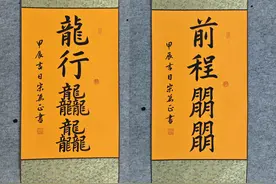 龍行龘龘
甲辰吉日
正書
前程朤朤
甲辰吉日
正書